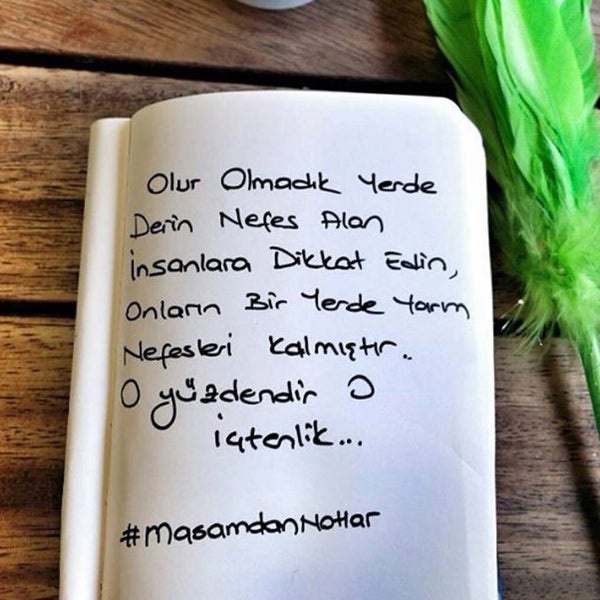 Olur Olmadık Yerde
Derin Nefes Alan
İnsanlara Dikkat Edin,
Onların Bir Yerde Yarım
Nefesleri Kalmıştır..
O yüzdendir O
İçtenlik...
#MasamdanNotlar